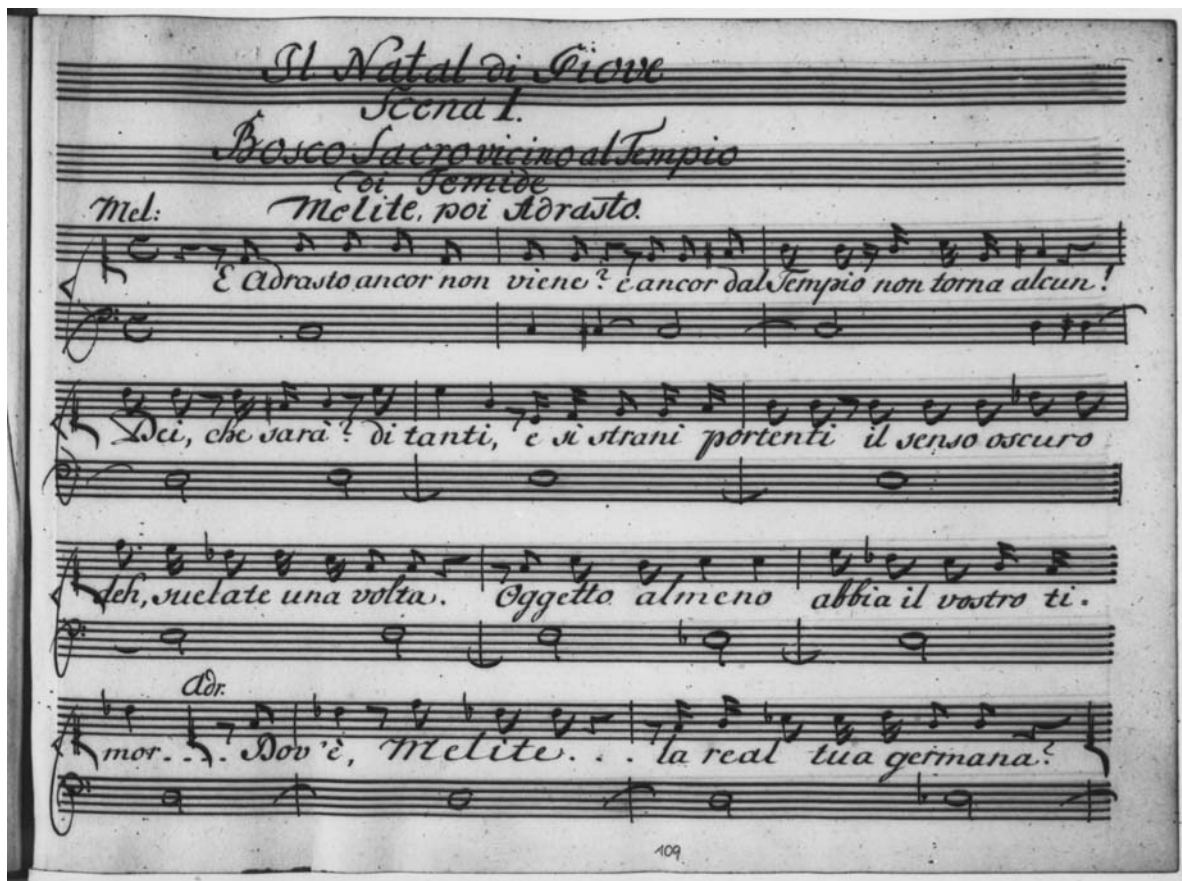 Il Natal di Giove
Scena I.
Bosco Sacro vicino al Tempio
di Temide
Mel: Melite, poi Adrasto.
E Adrasto ancor non viene? e ancor dal Tempio non torna alcun!
Dei, che sarà? di tanti, e si strani portenti il senso oscuro
deh, suelate una volta. Oggetto almeno abbia il vostro ti.
Adr.
mor.... Dov'è, Melite... la real tua germana?
109